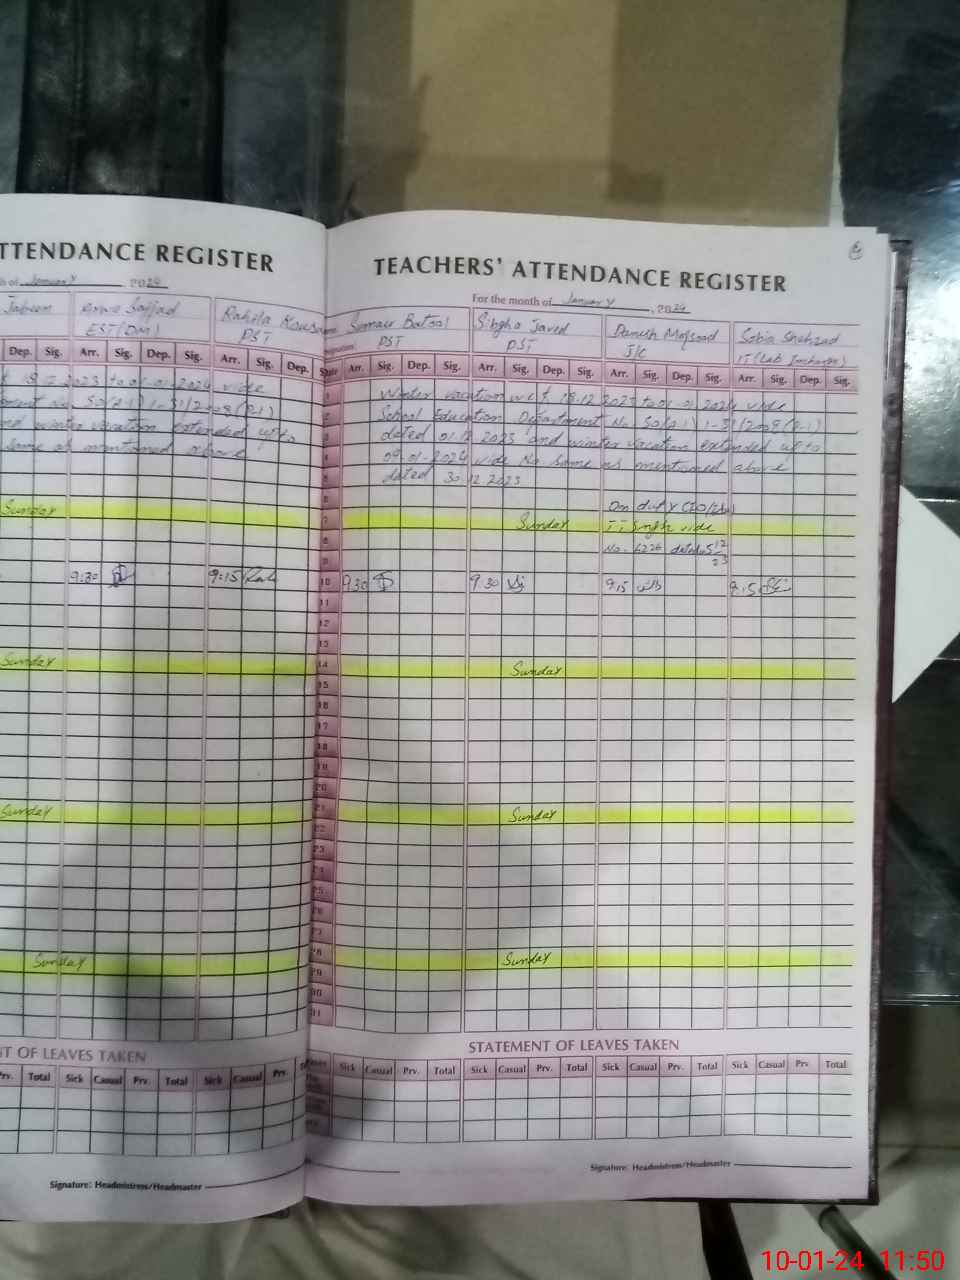 TTENDANCE REGISTER
of January, 2024
Sajjad
Rahila Kous
EST(DM)
PST
Dep. Sig. Arr. Sig. Dep. Sig. Arr. Sig. Dep.
2023 to 01-01-2024 vide
winter vacation extended upto
same as mentioned above
Sunday
9:30
9:15
Sunday
Sunday
Sunday
T OF LEAVES TAKEN
Prv. Total Sick Casual Prv. Total Sick Casual Prv.
Signature: Headmistress/Headmaster
TEACHERS' ATTENDANCE REGISTER
For the month of January, 2024
Batool
Javed
Danish
Sobia Shehzad
PST
PST
J/C
IT(Lab Incharge)
Arr. Sig. Dep. Sig. Arr. Sig. Dep. Sig. Arr. Sig. Dep. Sig. Arr. Sig. Dep. Sig.
1 Winter vacation w.e.f 18.12.2023 to 01-01-2024 vide
2 School Education Department No. SO(A-1) 1-31/2008(P-1)
3 dated 01.12.2023 and winter vacation extended upto
4 09.01-2024 vide No. Same as mentioned above
5 dated 30.12.2023
6 On duty CEO
7 Sunday vide
8 No. dated
9
10 9:30 9:30 9:15 9:15
11
12
13
14 Sunday
15
16
17
18
19
20
21 Sunday
22
23
24
25
26
27
28 Sunday
29
30
31
STATEMENT OF LEAVES TAKEN
Sick Casual Prv. Total Sick Casual Prv. Total Sick Casual Prv. Total Sick Casual Prv. Total
Signature: Headmistress/Headmaster
10-01-24 11:50